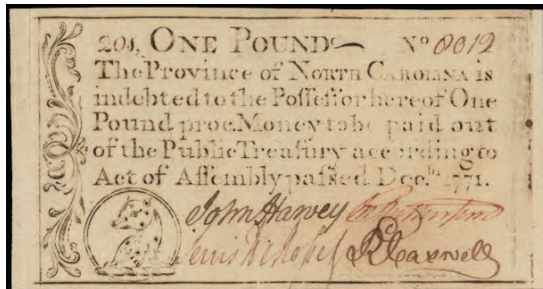 20s, ONE POUND No 8012
The Province of NORTH CAROLINA is
indebted to the Poſſeſſor hereof One
Pound proc. Money to be paid out
of the Public Treaſury according to
Act of Aſſembly paſſed Dec. 1771.
John Harvey
Lewis De Roſſet R Caswell